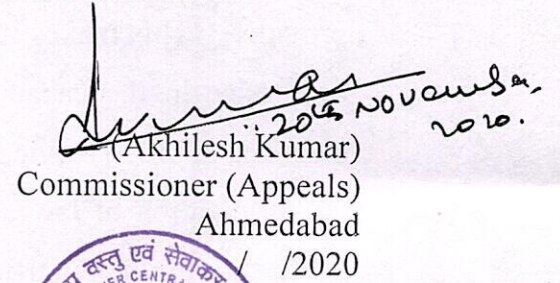 20th November,
2020.
(Akhilesh Kumar)
Commissioner (Appeals)
Ahmedabad
/ /2020
वस्तु एवं सेवाकर
CENTRA